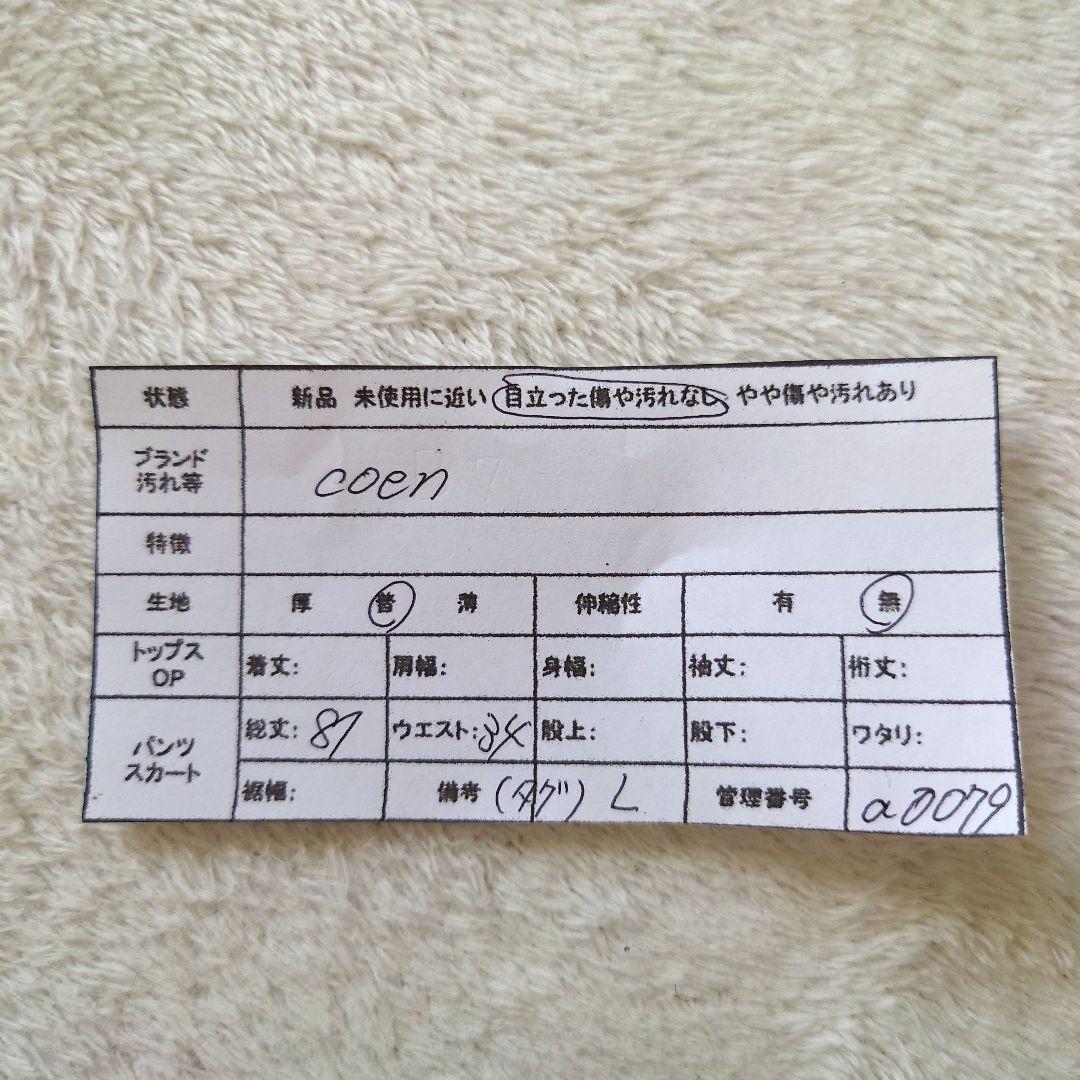 状態 新品 未使用に近い 目立った傷や汚れなし やや傷や汚れあり
ブランド
汚れ等 coen
特徴
生地 厚 普 薄 伸縮性 有 無
トップス
OP 着丈: 肩幅: 身幅: 袖丈: 裄丈:
パンツ
スカート
総丈: 87 ウエスト: 34 股上: 股下: ワタリ:
裾幅: 備考 (タグ) L 管理番号 a0079